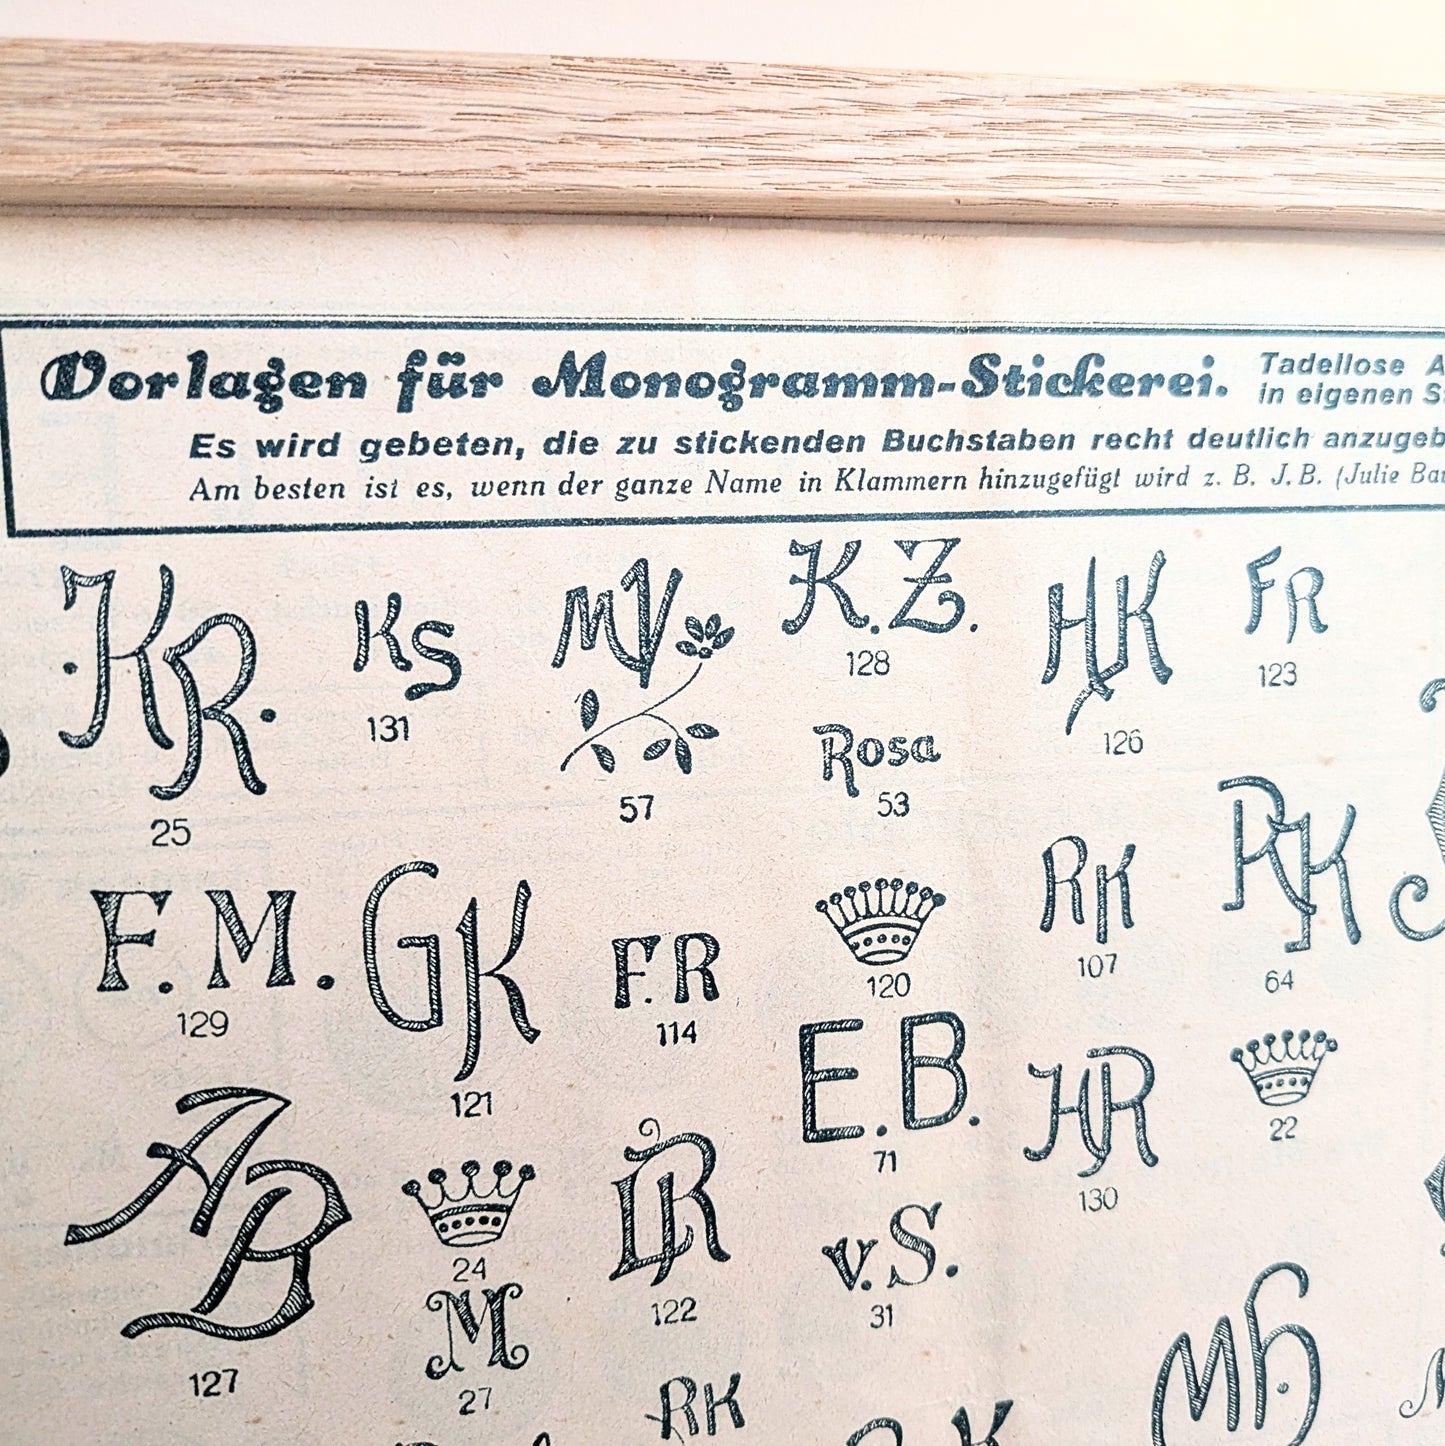 Vorlagen für Monogramm-Stickerei.
Tadellose
in eigenen
Es wird gebeten, die zu stickenden Buchstaben recht deutlich
Am besten ist es, wenn der ganze Name in Klammern hinzugefügt wird z. B. J. B. (Julie
KR.
25
KS
131
MV
57
K.Z.
128
HK
126
FR
123
Rosa
53
F.M.
129
GK
121
F.R
114
120
RK
107
RK
64
E.B.
71
HR
130
22
AB
127
24
LR
122
v.S.
31
M
27
RK